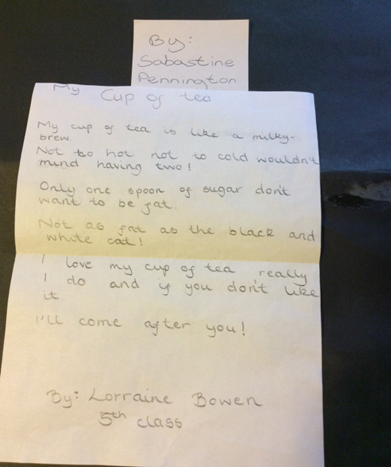 By:
Sabastine
Pennington
My
Cup of tea
My cup of tea is like a milky-
brew.
Not too hot not to cold wouldn't
mind having two!
Only one spoon of sugar don't
want to be fat.
Not as fat as the black and
white cat!
I love my cup of tea really
I do and if you don't like
it
I'll come after you!
By: Lorraine Bowen
5th class